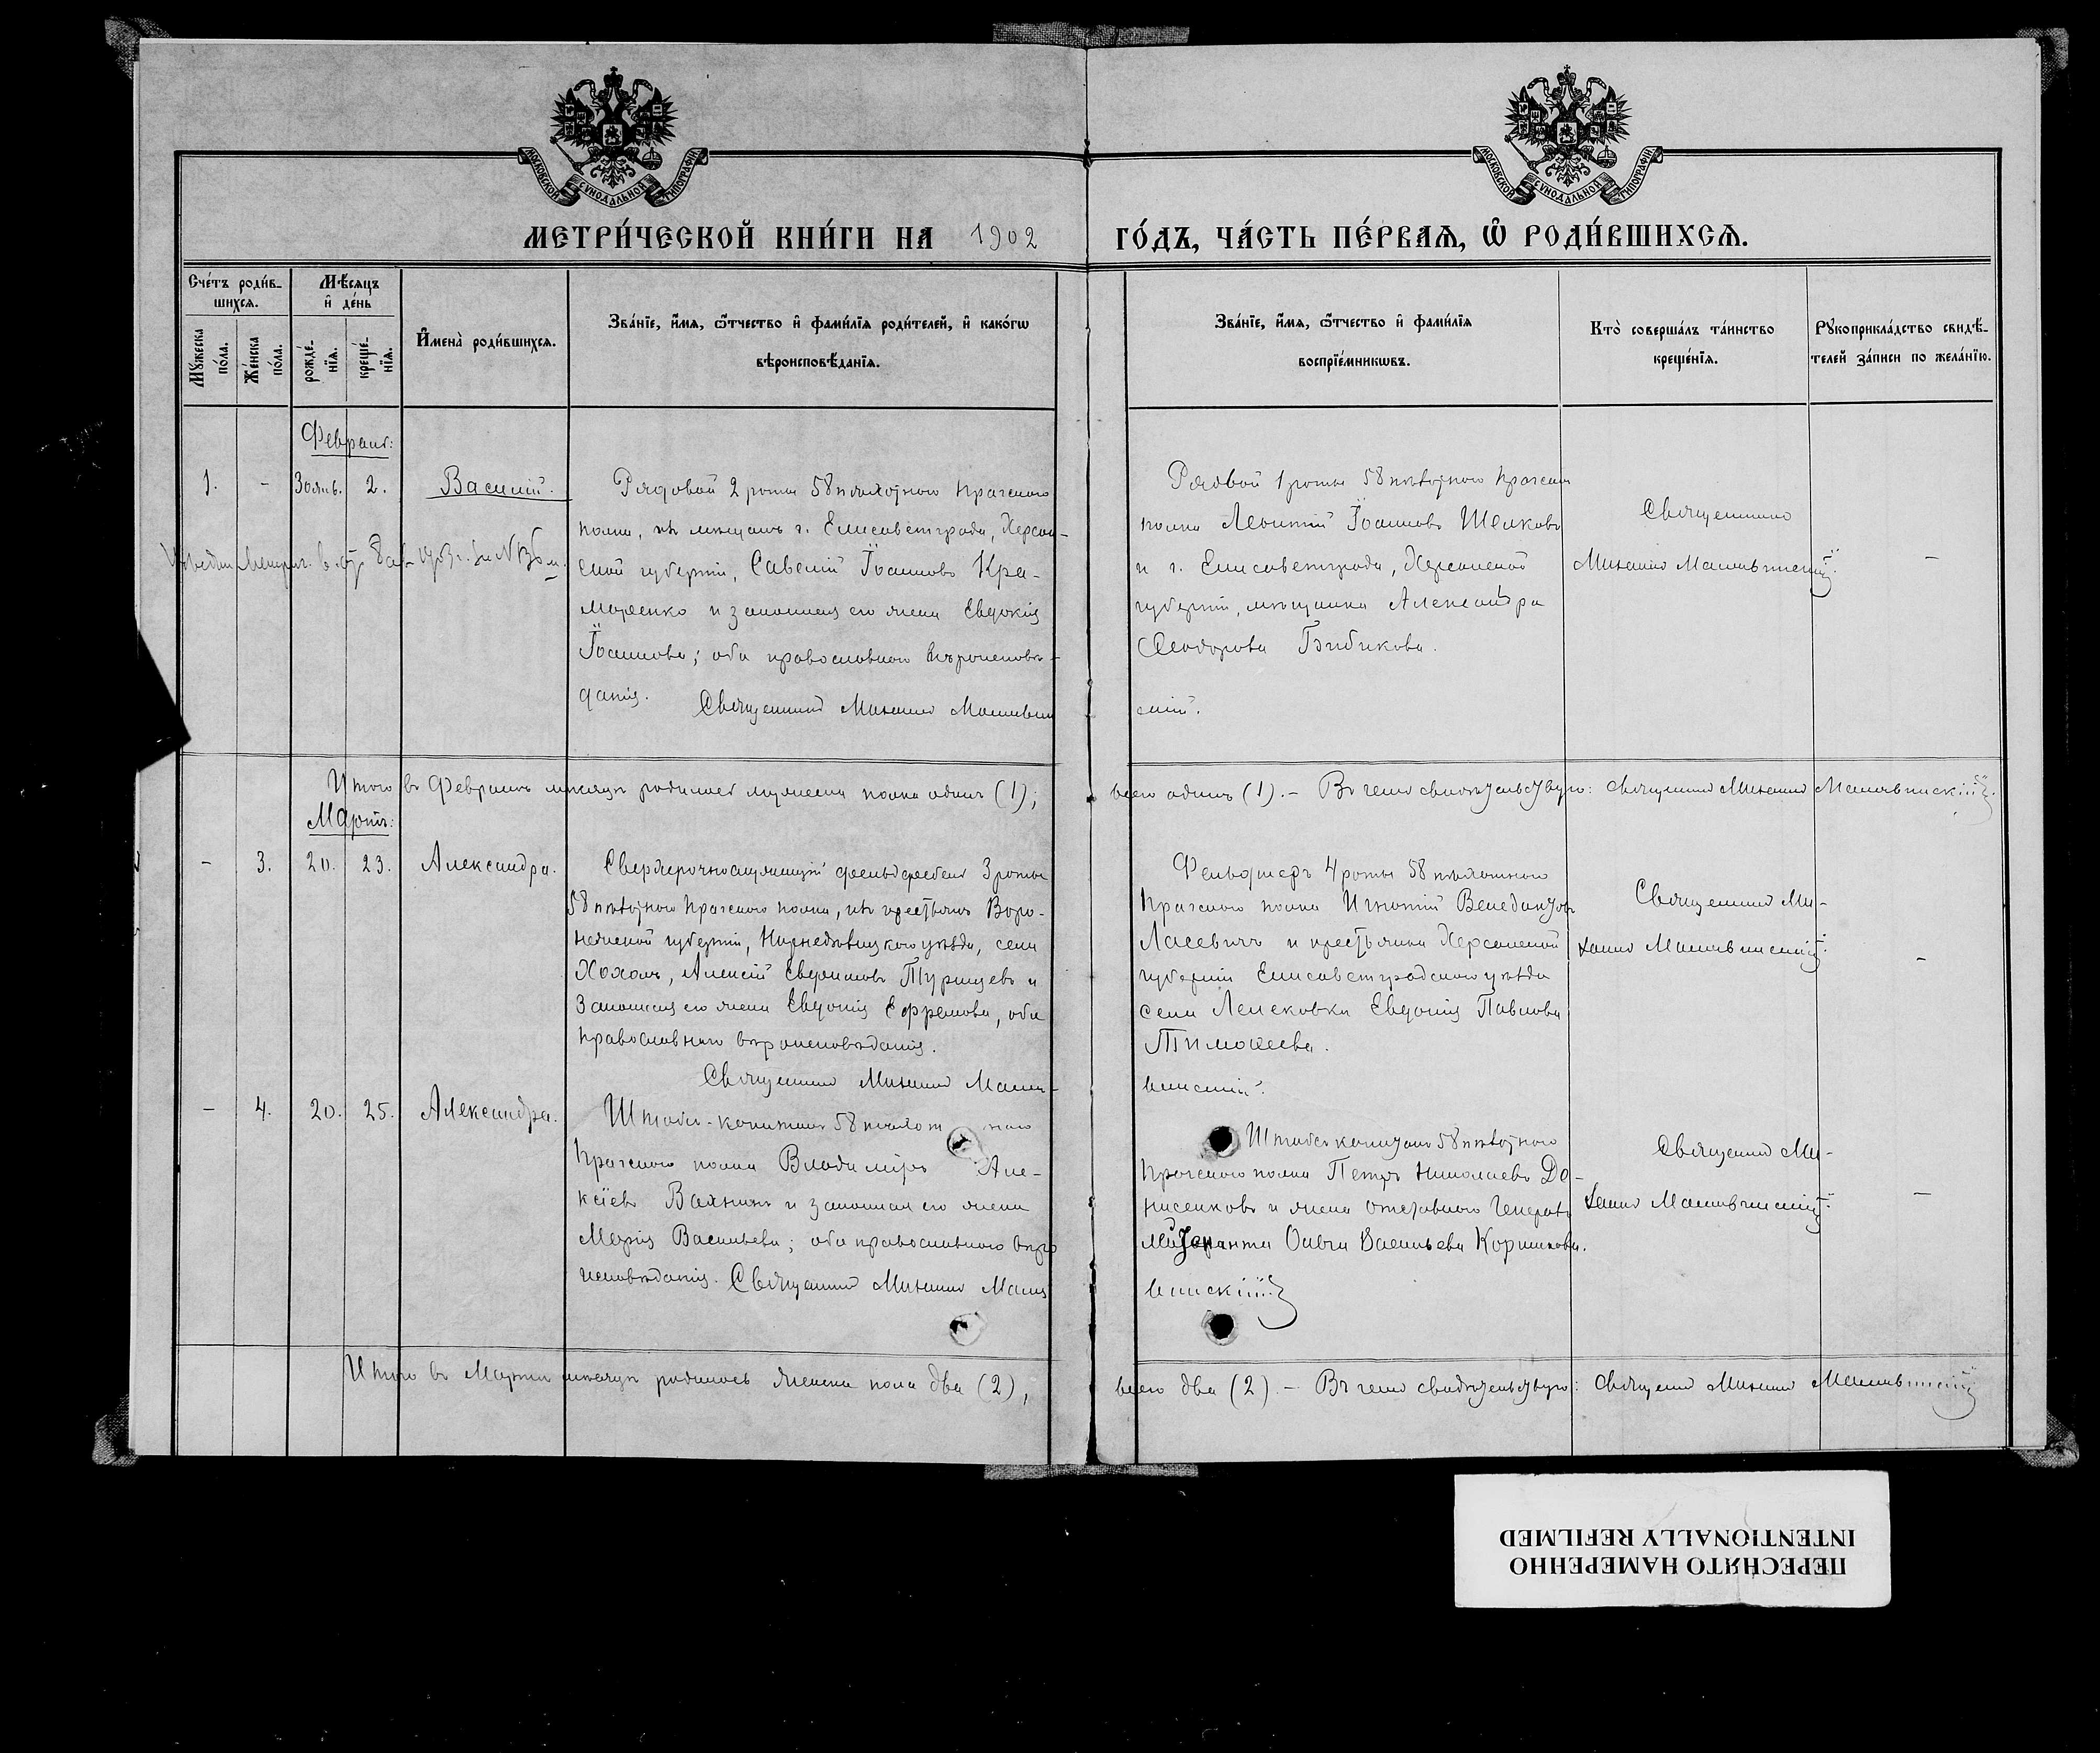 МОСКОВСКОЙ СУНОДАЛЬНОЙ ТИПОГРАФІИ
МОСКОВСКОЙ СУНОДАЛЬНОЙ ТИПОГРАФІИ
МЕТРИ́ЧЕСКОЙ КНИ́ГИ НА 1902
ГО́ДЪ, ЧА́СТЬ ПЕ́РВАѦ, Ѡ РОДИ́ВШИХСѦ.
Сче́тъ роди́в-
шихсѧ.
Мꙋжеска
по́ла.
Же́нска
по́ла.
Мѣ́сяцъ
и҆ де́нь
рожде́-
нїѧ.
креще́-
нїѧ.
И҆мена̀ роди́вшихсѧ.
Зва́нїе, и҆́мѧ, ѻ҆́тчество и҆ фами́лїѧ роди́телей, и҆ како́гѡ
вѣроисповѣ́данїѧ.
Зва́нїе, и҆́мѧ, ѻ҆́тчество и҆ фами́лїѧ
воспрїе́мникѡвъ.
Кто̀ соверша́лъ та́инство
креще́нїѧ.
Рꙋкоприкла́дство свидѣ́-
телей за́писи по жела́нїю.
Февраль:
1. - 30 янв. 2. Василій.
Рядовой 2 роты 58 пѣхотнаго Прагскаго
полка, изъ мѣщанъ г. Елисаветграда, Херсон-
ской губерніи, Савелій Іоанновъ Кра-
маренко и законная его жена Евдокія
Іоаннова; оба православнаго вѣроисповѣ-
данія.
Священникъ Михаилъ Малявин
Рядовой 1 роты 58 пѣхотнаго Прагскаго
полка Леонтій Іоанновъ Шелковъ
и г. Елисаветграда, Херсонской
губерніи, мѣщанка Александра
Ѳеодорова Бибикова.
скій.
Священникъ
Михаилъ Малявинскій.
-
Итого въ Февралѣ мѣсяцѣ родилось мужеска пола одинъ (1);
всего одинъ (1). - Въ чемъ свидѣтельствую: Священникъ Михаилъ Малявинскій.
Мартъ:
- 3. 20. 23. Александра.
Сверхсрочнослужащій фельдфебель 3 роты
58 пѣхотнаго Прагскаго полка, изъ крестьянъ Воро-
нежской губерніи, Нижнедѣвицкаго уѣзда, села
Хохолъ, Алексій Евфимовъ Турищевъ и
законная его жена Евдокія Ефремова, оба
православнаго вѣроисповѣданія.
Священникъ Михаилъ Маля-
Фельдшеръ 4 роты 58 пѣхотнаго
Прагскаго полка Игнатій Венедиктовъ
Ласевичъ и крестьянка Херсонской
губерніи Елисаветградскаго уѣзда
села Лелековки Евдокія Павлова
Тимоѳеева.
винскій.
Священникъ Ми-
хаилъ Малявинскій.
-
- 4. 20. 25. Александра.
Штабсъ-капитанъ 58 пѣхотнаго
Прагскаго полка Владиміръ Але-
ксіевъ Вахнинъ и законная его жена
Марія Васильева; оба православнаго вѣро
исповѣданія. Священникъ Михаилъ Маля
Штабсъ капитанъ 58 пѣхотнаго
Прагскаго полка Петръ Николаевъ Де-
нисенковъ и жена отставного Генералъ
Ольга Васильева Коршикова.
винскій
Священникъ Ми-
хаилъ Малявинскій.
-
Итого въ Мартѣ мѣсяцѣ родилось женска пола два (2),
всего два (2). - Въ чемъ свидѣтельствую: Священникъ Михаилъ Малявинскій
ПЕРЕСНЯТО НАМЕРЕННО
INTENTIONALLY REFILMED